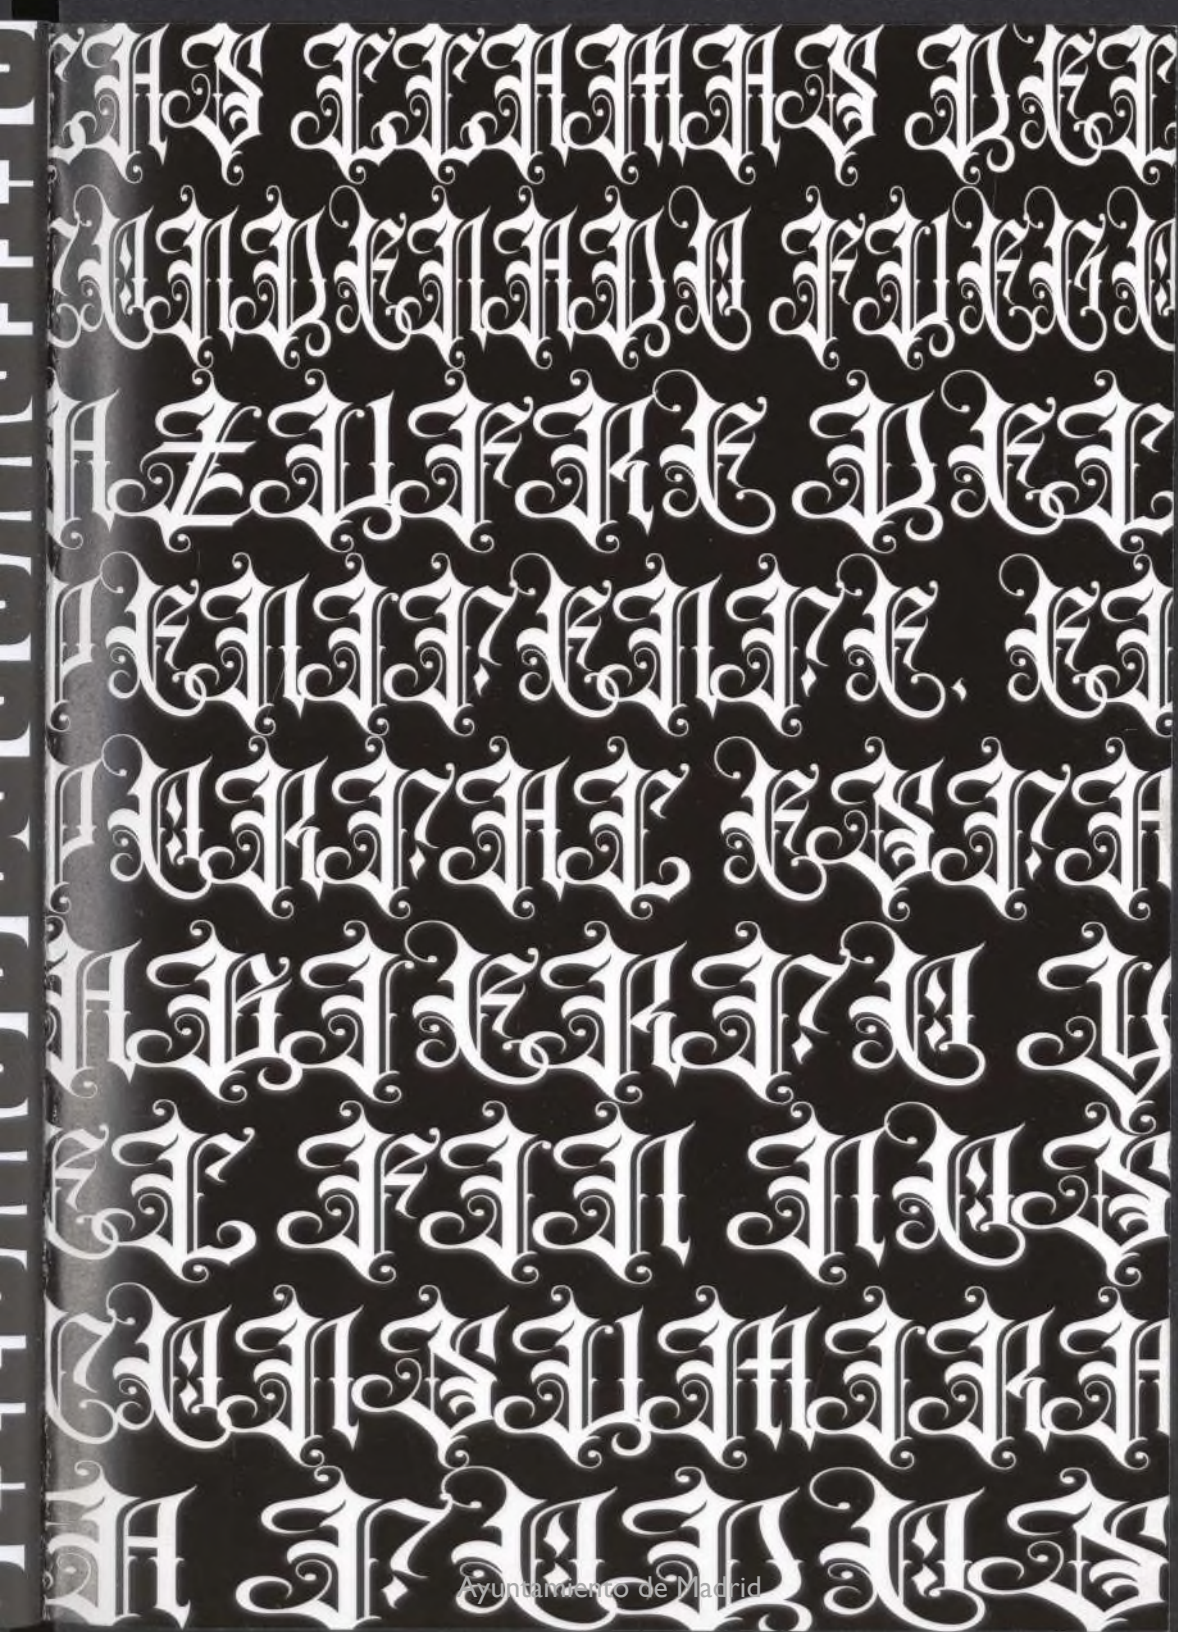 LAS LLAMAS DEL
CONDENADO FUEGO
AZUFRE DEL
PENITENTE. EL
PORTAL ESTA
ABIERTO Y
EL FIN NOS
CONSUMIRA
A TODOS
Ayuntamiento de Madrid